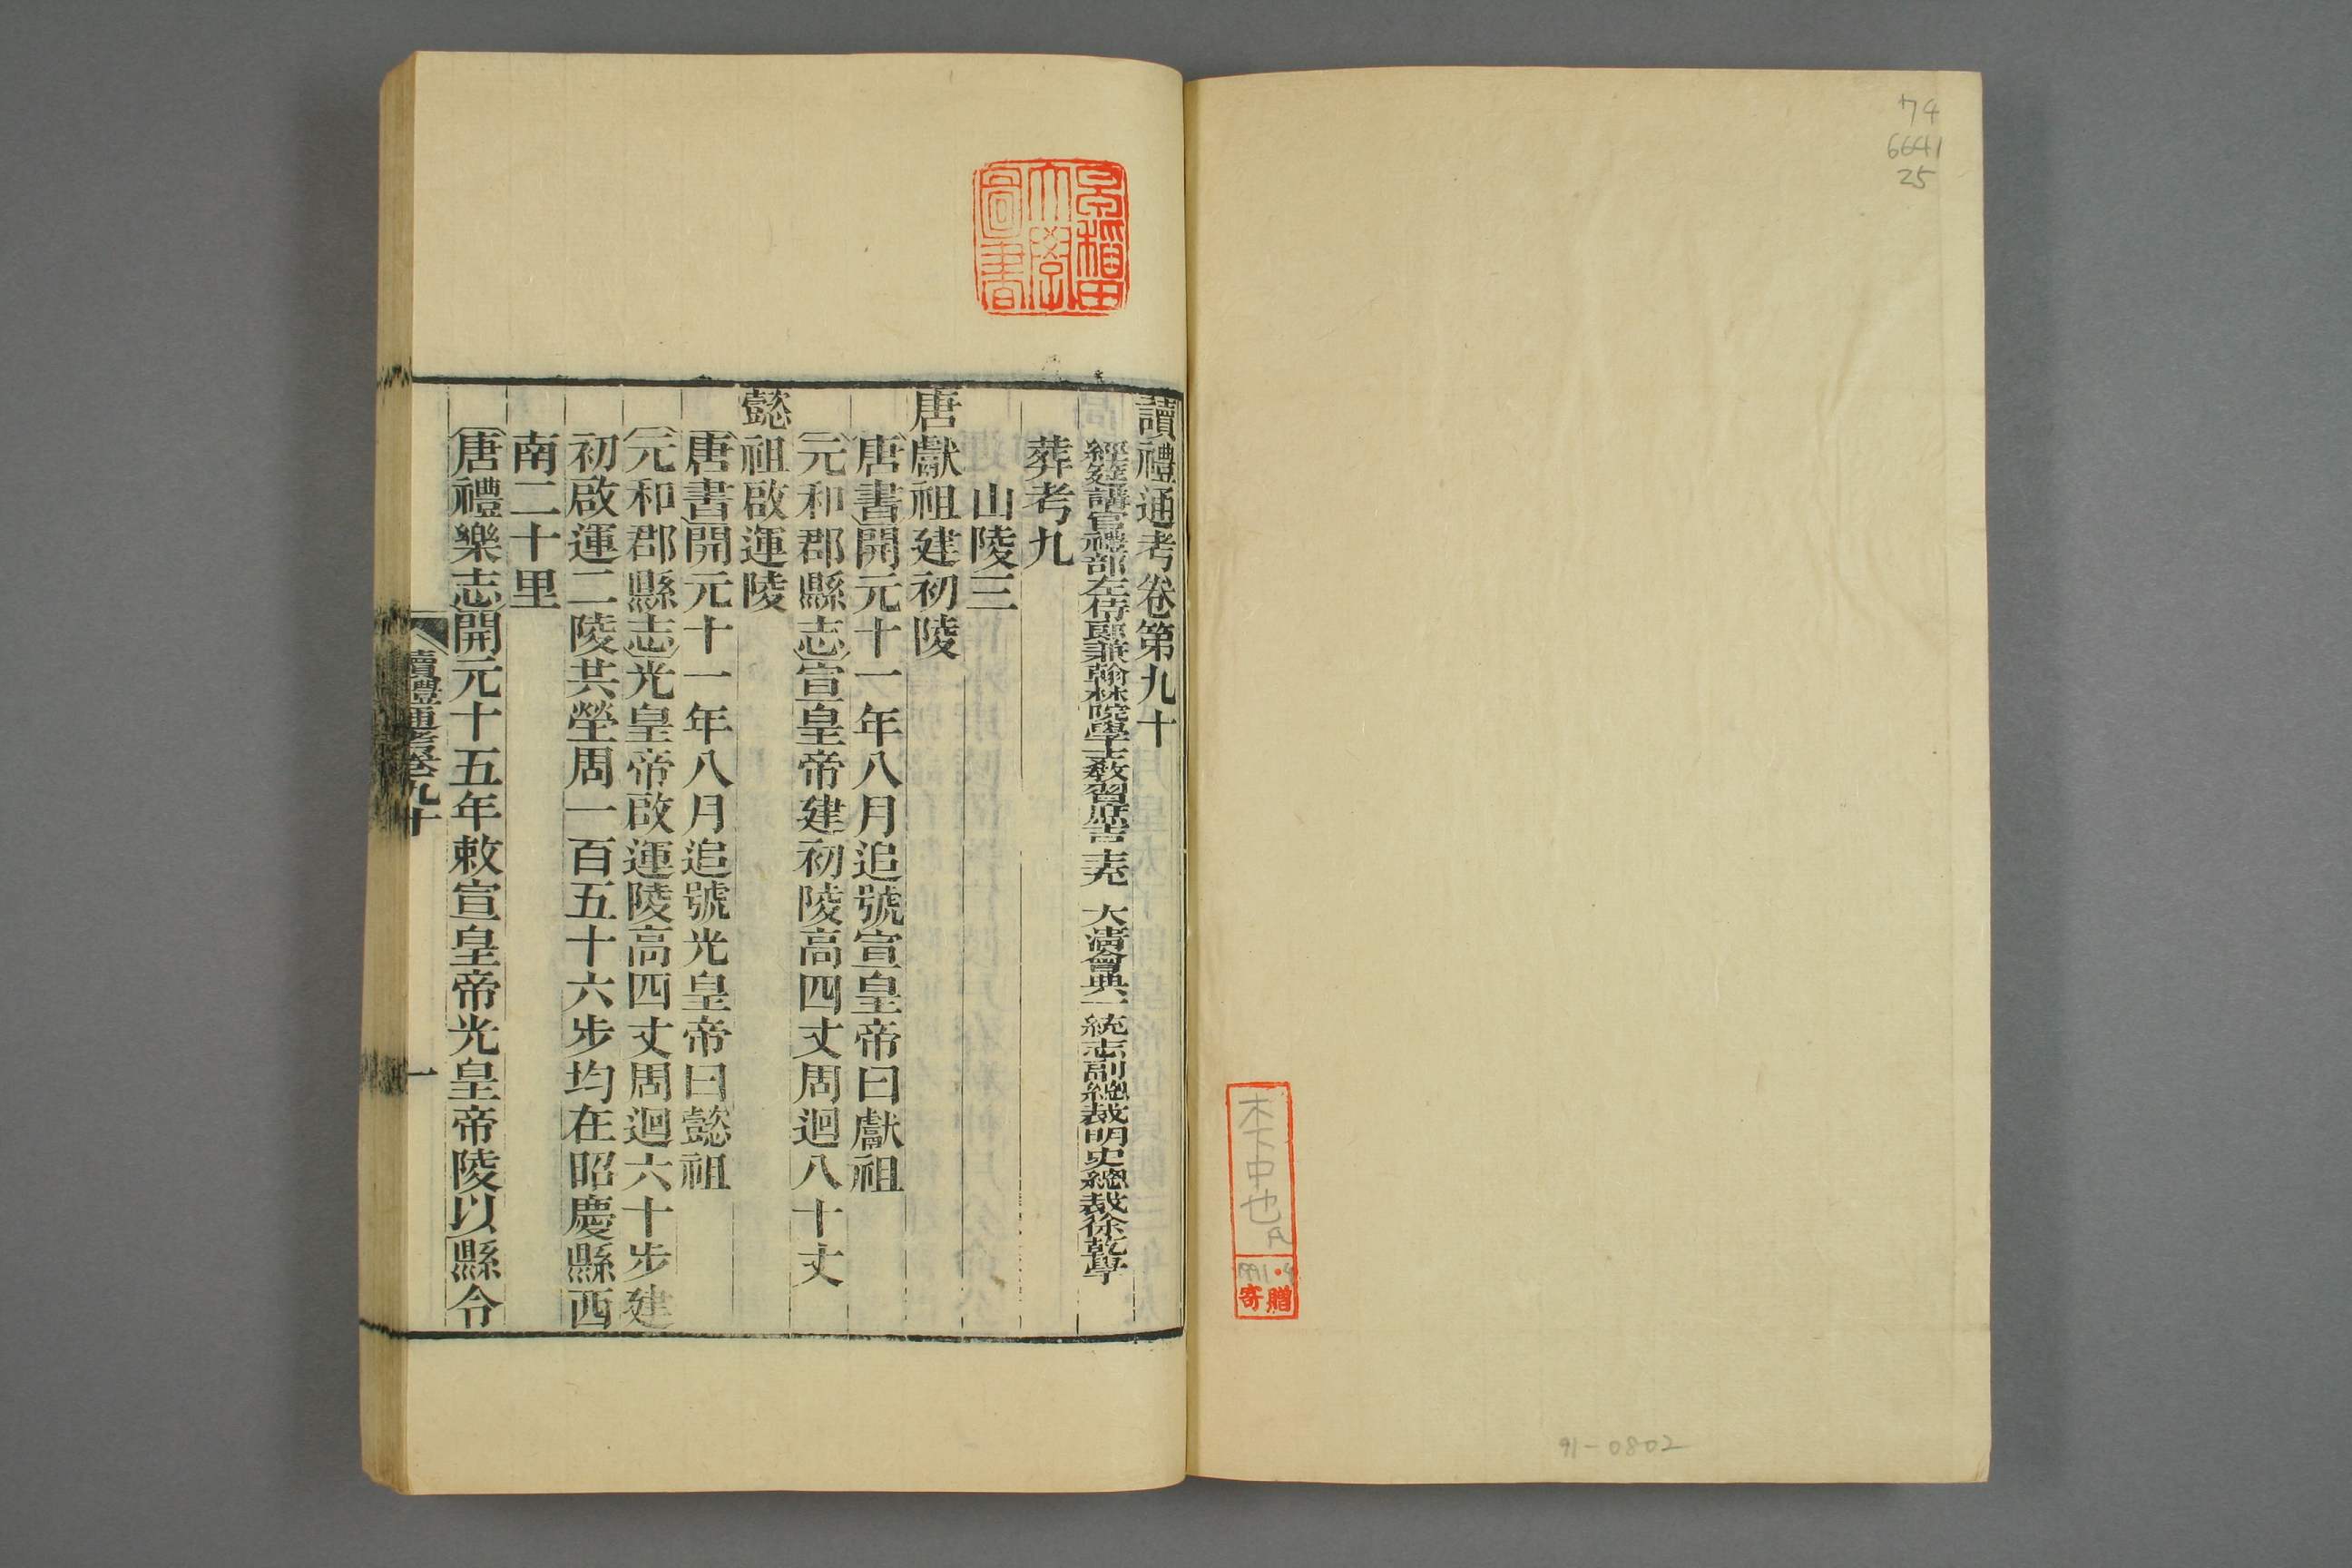 74
6641
25
木下中也氏
寄贈
91-0802
早稲田
大學
圖書
讀禮通考卷第九十
經筵講官禮部左侍郎兼翰林院學士教習庶吉士充 大清會典一統志副總裁明史總裁徐乾學
葬考九
山陵三
唐獻祖建初陵
唐書開元十一年八月追號宣皇帝曰獻祖
元和郡縣志宣皇帝建初陵高四丈周迴八十丈
懿祖啟運陵
唐書開元十一年八月追號光皇帝曰懿祖
元和郡縣志光皇帝啟運陵高四丈周迴六十步建
初啟運二陵共塋周一百五十六步均在昭慶縣西
南二十里
唐禮樂志開元十五年敕宣皇帝光皇帝陵以縣令
讀禮通考卷九十
一